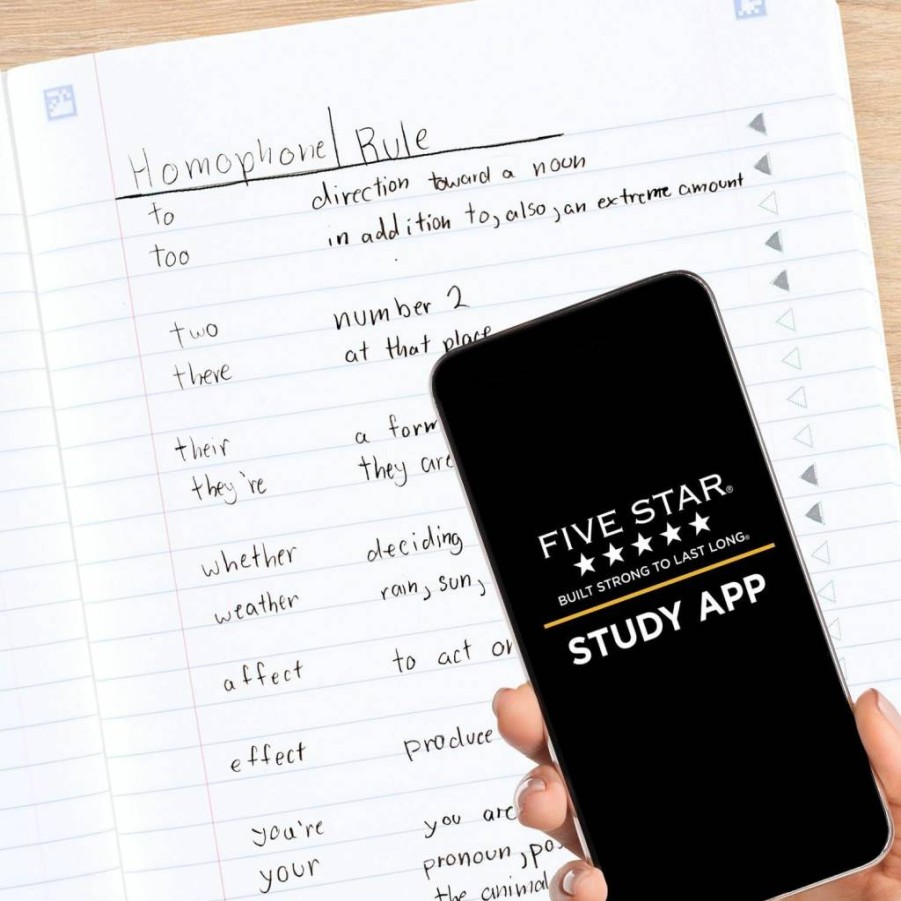 Homophone Rule
to direction toward a noun
too in addition to, also, an extreme amount
two number 2
there at that place
their a form
they're they are
whether deciding
weather rain, sun,
affect to act on
effect produce
you're you are
your pronoun,
the animal
FIVE STAR®
BUILT STRONG TO LAST LONG®
STUDY APP